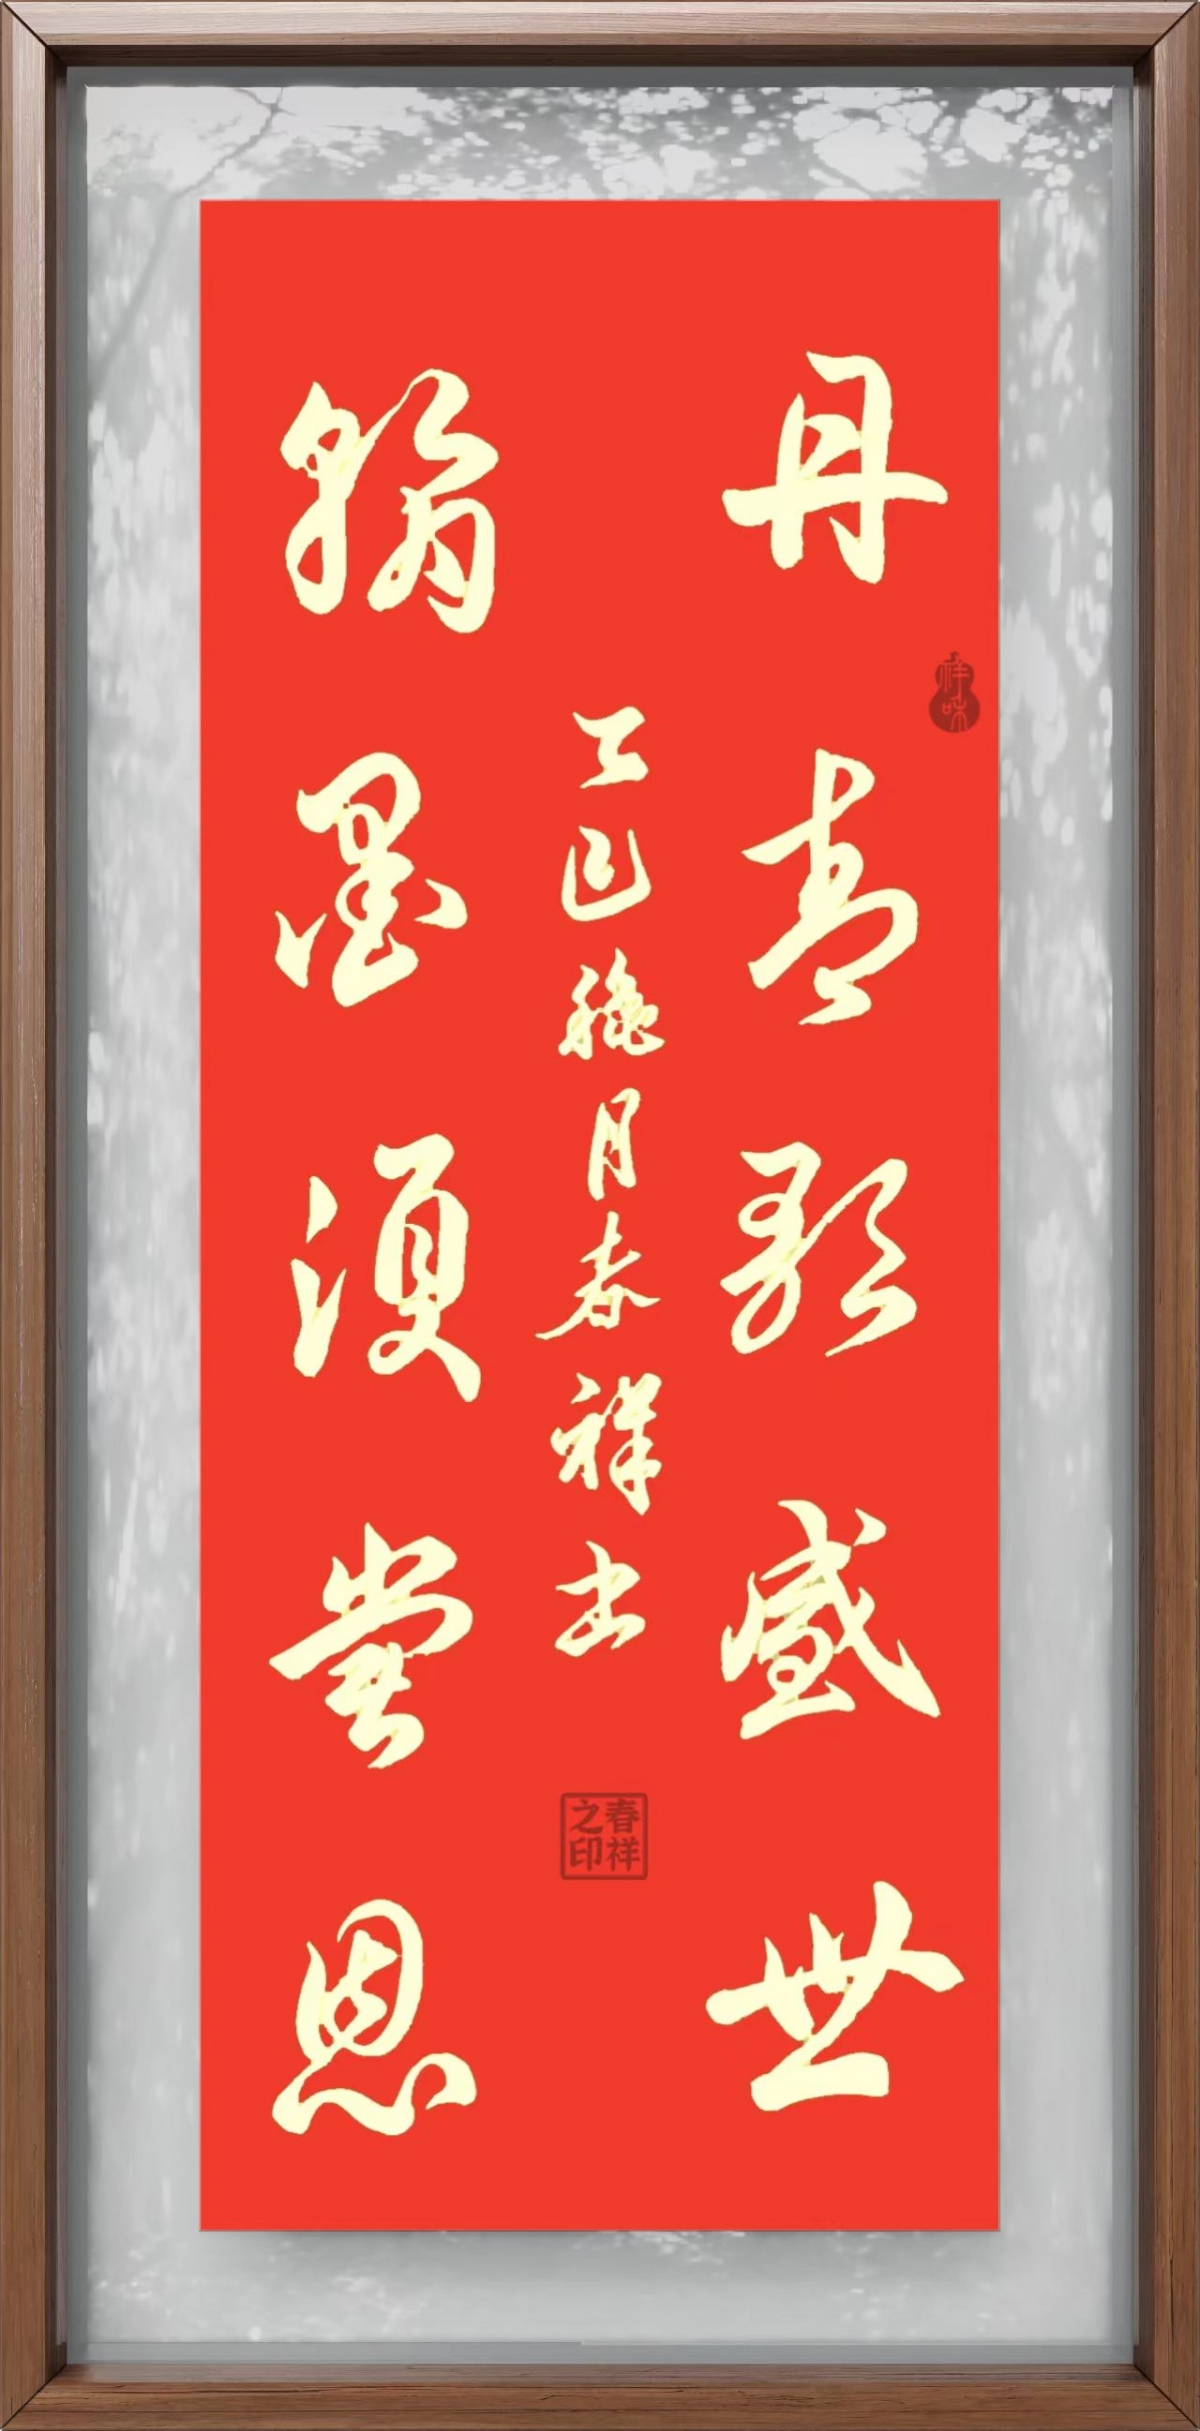 丹青歌盛世
祥和
乙巳穐月春祥书
春祥之印
翰墨颂党恩